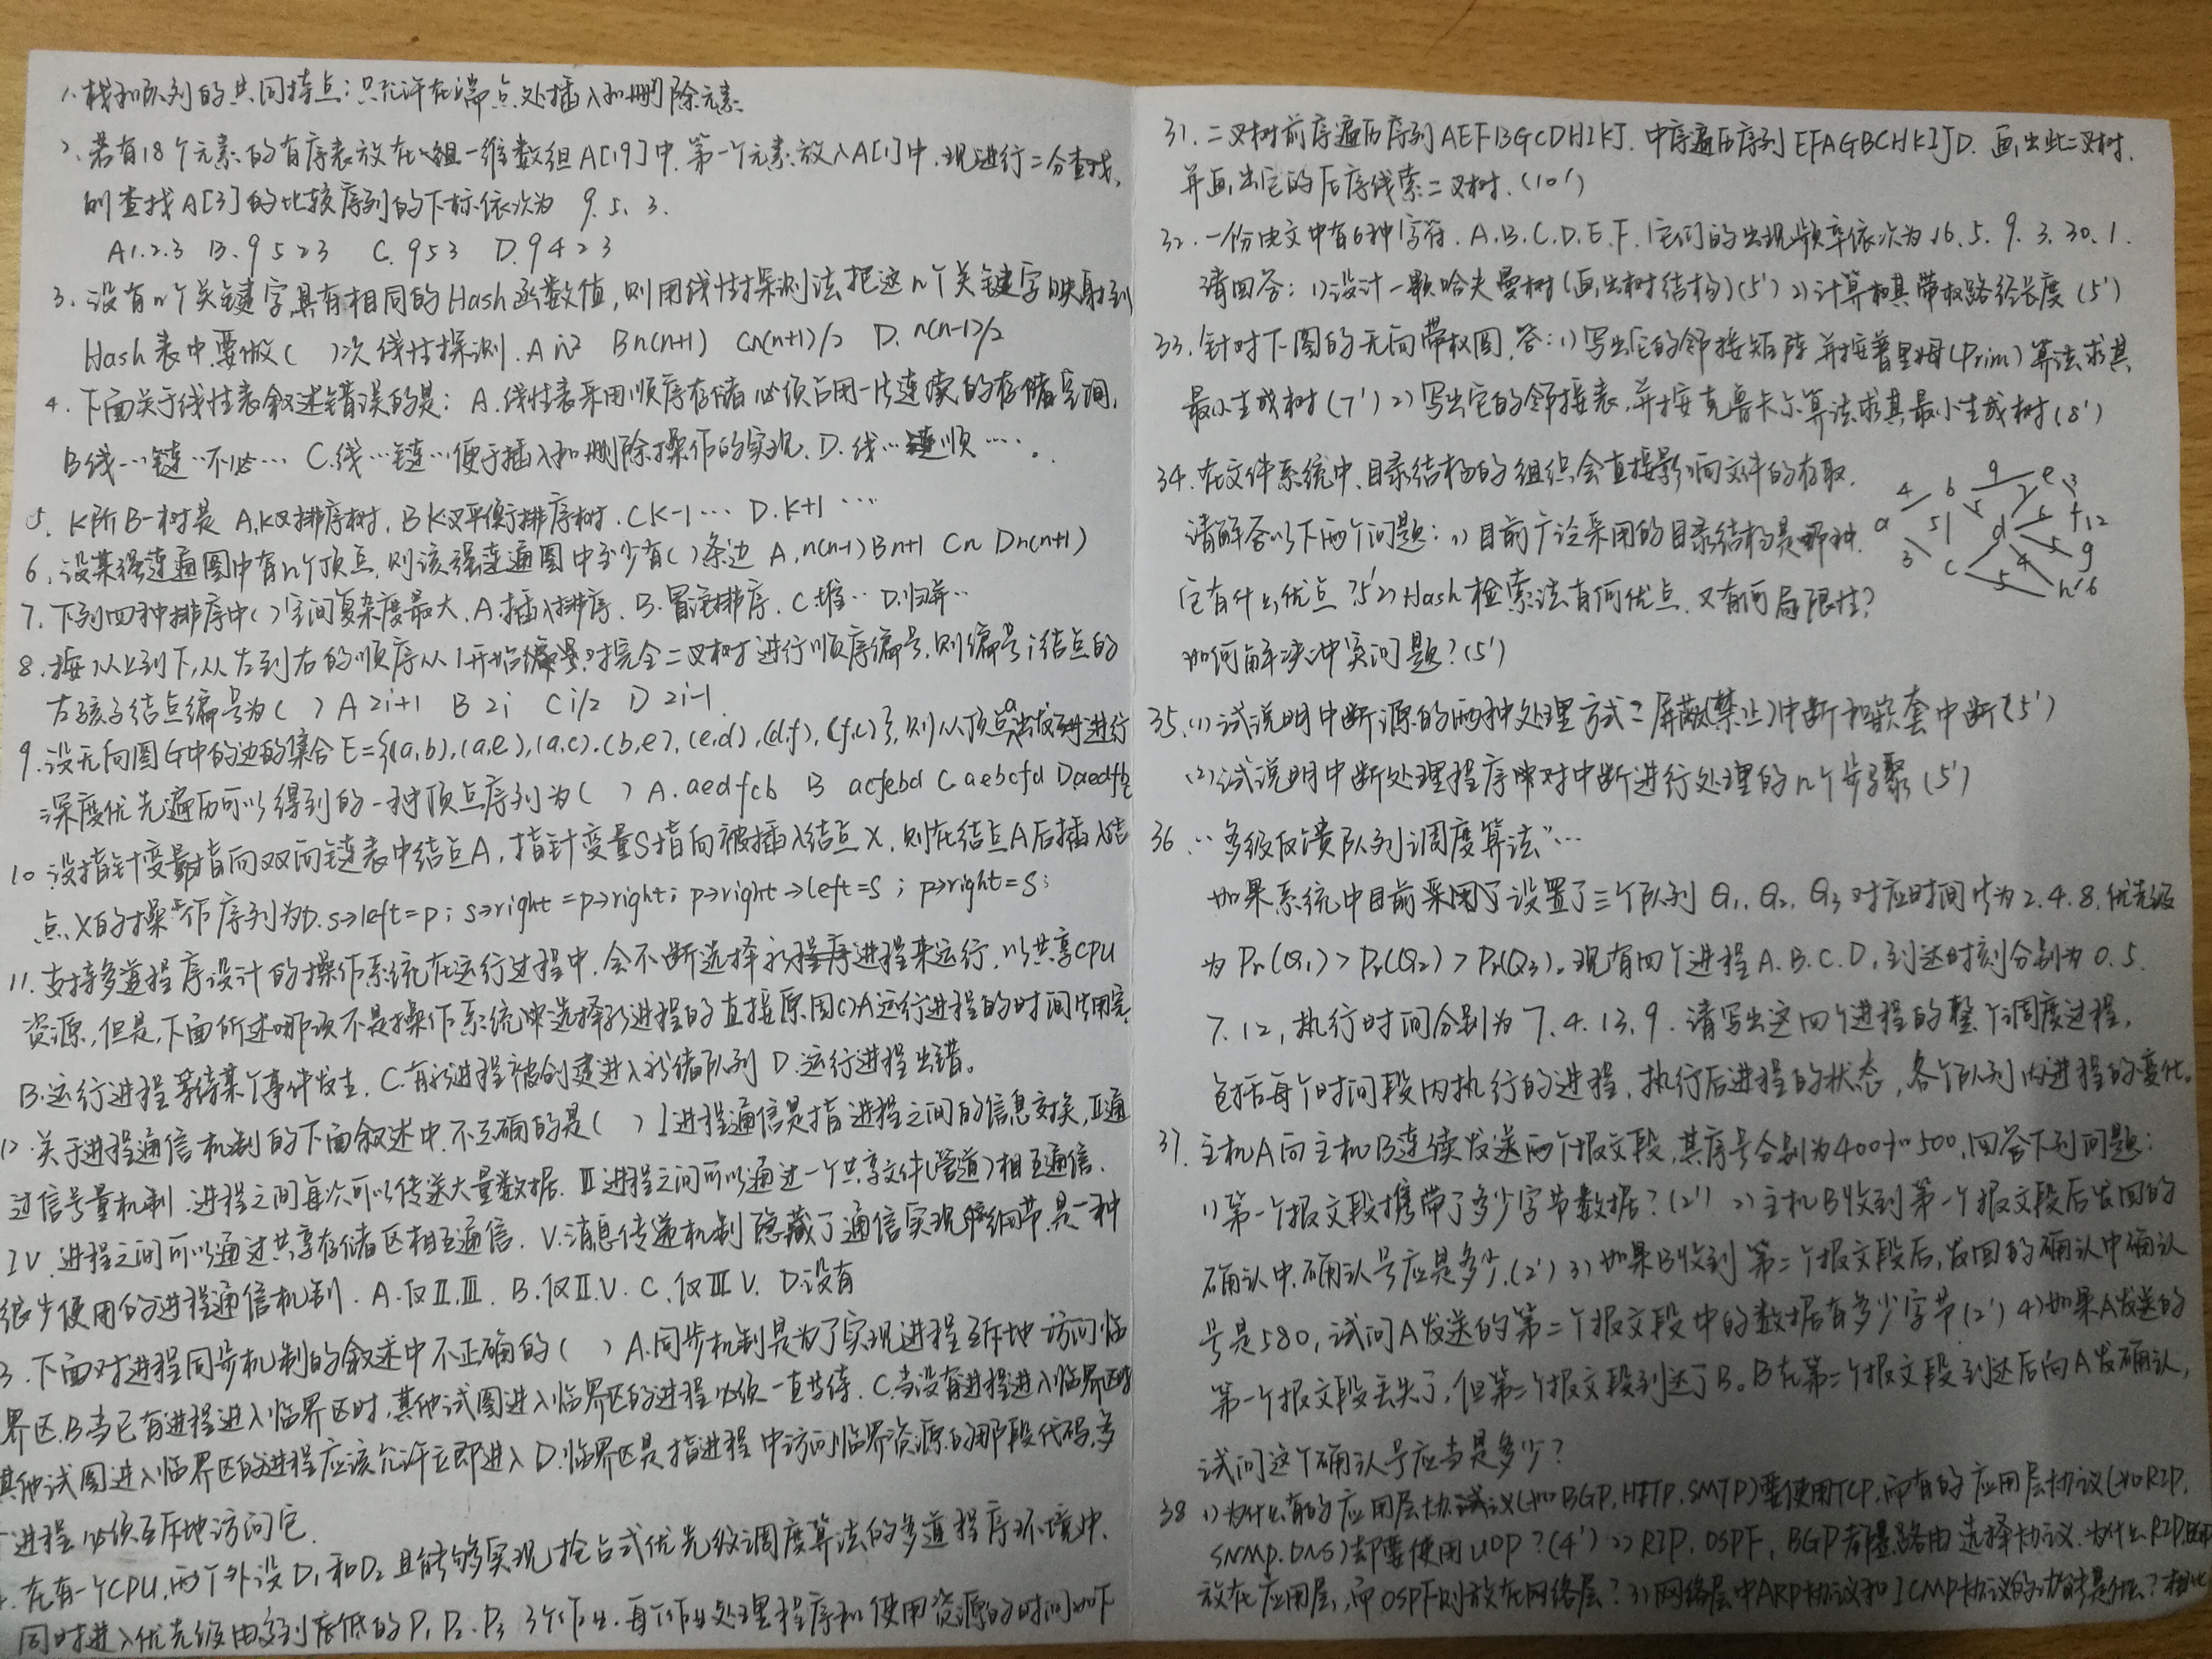 1.栈和队列的共同特点:只允许在端点处插入和删除元素
2.若有18个元素的有序表放在一组一维数组A[19]中.第一个元素放入A[1]中.现进行二分查找,
则查找A[3]的比较序列的下标依次为 9.5.3.
A1.2.3 B.9523 C.953 D.9423
3.设有n个关键字具有相同的Hash函数值,则用线性探测法把这n个关键字映射到
Hash表中要做( )次线性探测.A n² Bn(n+1) Cn(n+1)/2 D.n(n-1)/2
4.下面关于线性表叙述错误的是:A.线性表采用顺序存储必须占用一片连续的存储空间,
B线…链…不必… C.线…链…便于插入和删除操作的实现.D.线…顺….
5.K阶B-树是 A.K叉排序树.B K叉平衡排序树.C K-1… D.K+1…
6.设某强连通图中有n个顶点.则该强连通图中至少有( )条边 A.n(n-1) B n+1 Cn Dn(n+1)
7.下列四种排序中( )空间复杂度最大.A.插入排序.B.冒泡排序.C堆.. D.归并..
8.按从上到下,从左到右的顺序从1开始编号.对完全二叉树进行顺序编号.则编号i结点的
左孩子结点编号为( ) A 2i+1 B 2i C i/2 D 2i-1
9.设无向图G中的边的集合E={(a,b),(a,e),(a,c).(b,e),(e,d),(d,f),(f,c)},则从顶点a出发进行
深度优先遍历可以得到的一种顶点序列为( ) A.aedfcb B acfebd C aebcfd D.aedfb
10 设指针变量指向双向链表中结点A,指针变量S指向被插入结点X,则在结点A后插入结
点X的操作序列为D.s→left=p; s→right=p→right; p→right→left=s; p→right=s;
11.支持多道程序设计的操作系统在运行过程中,会不断选择新进程来运行,以共享CPU
资源,但是,下面所述哪项不是操作系统选择新进程的直接原因( )A运行进程的时间片用完,
B.运行进程等待某个事件发生.C.有新进程被创建进入就绪队列 D.运行进程出错。
12.关于进程通信机制的下面叙述中.不正确的是( ) I进程通信是指进程之间的信息交换,II通
过信号量机制.进程之间每次可以传送大量数据.III进程之间可以通过一个共享文件(管道)相互通信.
IV.进程之间可以通过共享存储区相互通信.V.消息传递机制隐藏了通信实现细节.是一种
很少使用的进程通信机制.A.仅II.III. B.仅II.V.C.仅III.V.D.没有
3.下面对进程同步机制的叙述中不正确的( ) A.同步机制是为了实现进程互斥地访问临
界区.B当已有进程进入临界区时,其他试图进入临界区的进程必须一直等待.C.当没有进程进入临界区时
其他试图进入临界区的进程应该允许立即进入D.临界区是指进程中访问临界资源的那段代码,多
进程必须互斥地访问它.
.在有一个CPU.两个外设D₁和D₂且能够实现抢占式优先级调度算法的多道程序环境中.
同时进入优先级由高到底低的P₁ P₂.P₃ 3个作业.每个作业处理程序和使用资源的时间如下
31.二叉树前序遍历序列AEFBGCDHIKJ.中序遍历序列EFAGBCHKIJD.画出此二叉树.
并画出它的后序线索二叉树.(10')
32.一份电文中有6种字符.A.B.C.D.E.F.它们的出现频率依次为16.5.9.3.30.1.
请回答:1)设计一颗哈夫曼树(画出树结构)(5')2)计算其带权路径长度(5')
33.针对下图的无向带权图.答:1)写出它的邻接矩阵并按普里姆(Prim)算法求其
最小生成树(7')2)写出它的邻接表,并按克鲁卡尔算法求其最小生成树(8')
34.在文件系统中.目录结构的组织会直接影响文件的存取.
请解答以下两个问题:1)目前广泛采用的目录结构是哪种.
它有什么优点?5'2)Hash检索法有何优点.又有何局限性?
如何解决冲突问题?(5')
4 b 9 e 3
a 5 5 7 d 6 f 12
3 c 4 5 g
5 h 6
35.(1)试说明中断源的两种处理方式:屏蔽(禁止)中断和嵌套中断(5')
(2)试说明中断处理程序对中断进行处理的几个步骤(5')
36.…多级反馈队列调度算法"…
如果系统中目前设置了三个队列Q₁.Q₂.Q₃对应时间片为2.4.8.优先级
为Pr(Q₁)>Pr(Q₂)>Pr(Q₃).现有四个进程A.B.C.D.到达时刻分别为0.5.
7.12,执行时间分别为7.4.13.9.请写出这四个进程的整个调度过程,
包括每个时间段内执行的进程.执行后进程的状态,各个队列内进程的变化。
37.主机A向主机B连续发送两个报文段,其序号分别为400和500,回答下列问题:
1)第一个报文段携带了多少字节数据?(2')2)主机B收到第一个报文段后发回的
确认中.确认号应是多少.(2')3)如果B收到第二个报文段后,发回的确认中确认
号是580,试问A发送的第二个报文段中的数据有多少字节(2')4)如果A发送的
第一个报文段丢失了,但第二个报文段到达了B。B在第二个报文段到达后向A发确认,
试问这个确认号应当是多少?
38 1)为什么有的应用层协议(如BGP.HTTP.SMTP)要使用TCP,而有的应用层协议(如RIP.
SNMP.DNS)却要使用UDP?(4')2)RIP.OSPF,BGP都是路由选择协议.为什么RIP.
放在应用层,而OSPF则放在网络层?3)网络层中ARP协议和ICMP协议的功能是什么?